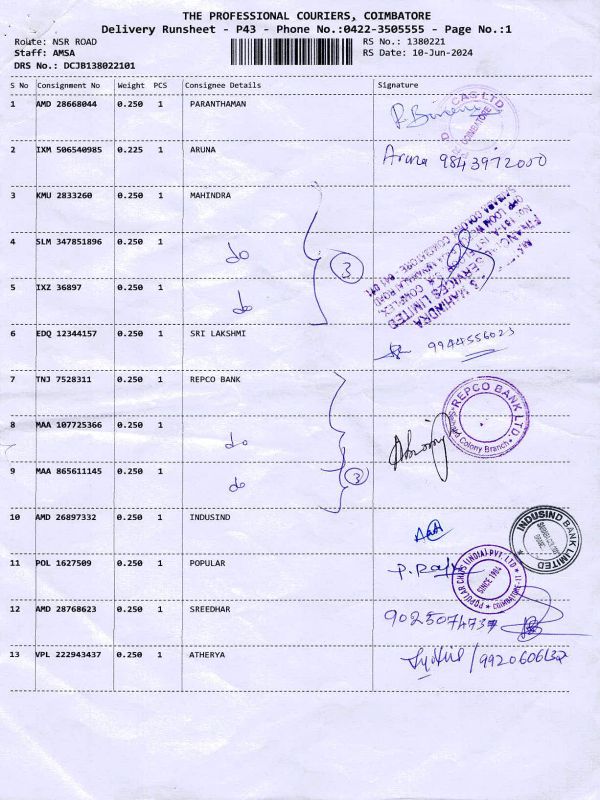 THE PROFESSIONAL COURIERS, COIMBATORE
Delivery Runsheet - P43 - Phone No.:0422-3505555 - Page No.:1
Route: NSR ROAD
RS No.: 1380221
Staff: AMSA
RS Date: 10-Jun-2024
DRS No.: DCJB138022101
S No Consignment No Weight PCS Consignee Details Signature
1 AMD 28668044 0.250 1 PARANTHAMAN
2 IXM 506540985 0.225 1 ARUNA Aruna 9843972000
3 KMU 2833260 0.250 1 MAHINDRA
4 SLM 347851896 0.250 1 do 3
5 IXZ 36897 0.250 1 do
MAHINDRA
SERVICES LIMITED
6 EDQ 12344157 0.250 1 SRI LAKSHMI 9944556023
7 TNJ 7528311 0.250 1 REPCO BANK
REPCO BANK LTD
Colony Branch
8 MAA 107725366 0.250 1 do
9 MAA 865611145 0.250 1 do 3
10 AMD 26897332 0.250 1 INDUSIND
INDUSIND BANK LIMITED
11 POL 1627509 0.250 1 POPULAR P. Raj
POPULAR CHIPS (INDIA) PVT LTD
SINCE 1984
COIMBATORE-11
12 AMD 28768623 0.250 1 SREEDHAR
13 VPL 222943437 0.250 1 ATHERYA 9920606132